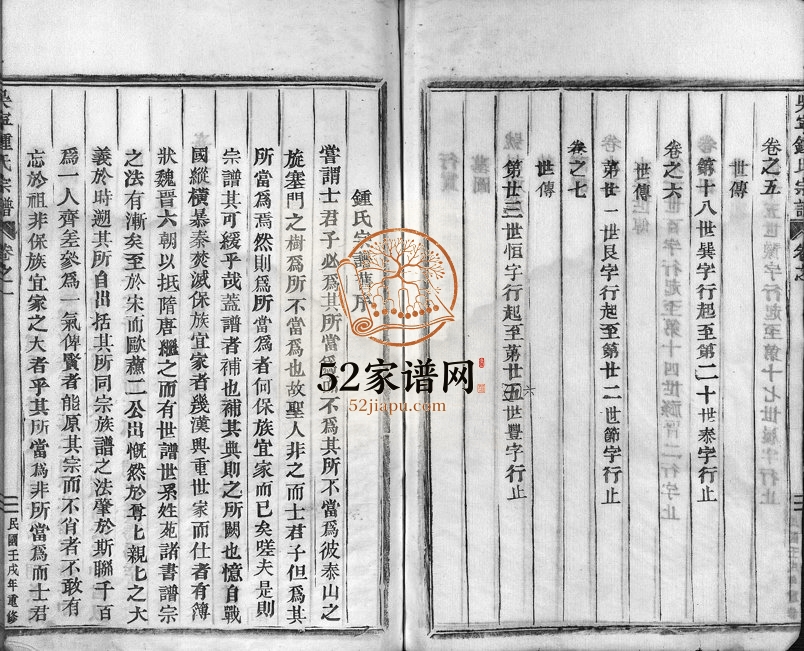 卷之五
世傳
第十八世巽字行起至第二十世泰字行止
卷之六
世傳
第廿一世艮字行起至第廿二世節字行止
卷之七
世傳
第廿三世恒字行起至第廿五世豐字行止
六
鍾氏宗譜舊序
嘗謂士君子必爲其所當爲不爲其所不當爲彼泰山之
旅塞門之樹爲所不當爲也故聖人非之而士君子但爲其
所當爲焉然則爲所當爲者何保族宜家而已矣嗟夫是則
宗譜其可緩乎哉蓋譜者補也補其典則之所闕也憶自戰
國縱橫暴秦焚滅保族宜家者幾漢興重世家而仕者有簿
狀魏晉六朝以抵隋唐繼之而有世譜世系姓苑諸書譜宗
之法有漸矣至於宋而歐蘇二公出慨然於尊上親上之大
義於時遡其所自出括其所同宗族譜之法肇於斯聯千百
爲一人齊差參爲一氣俾賢者能原其宗而不肖者不敢有
忘於祖非保族宜家之大者乎其所當爲非所當爲而士君
吳寧鍾氏宗譜
卷之一
民國壬戌年重修
52家谱网
52jiapu.com